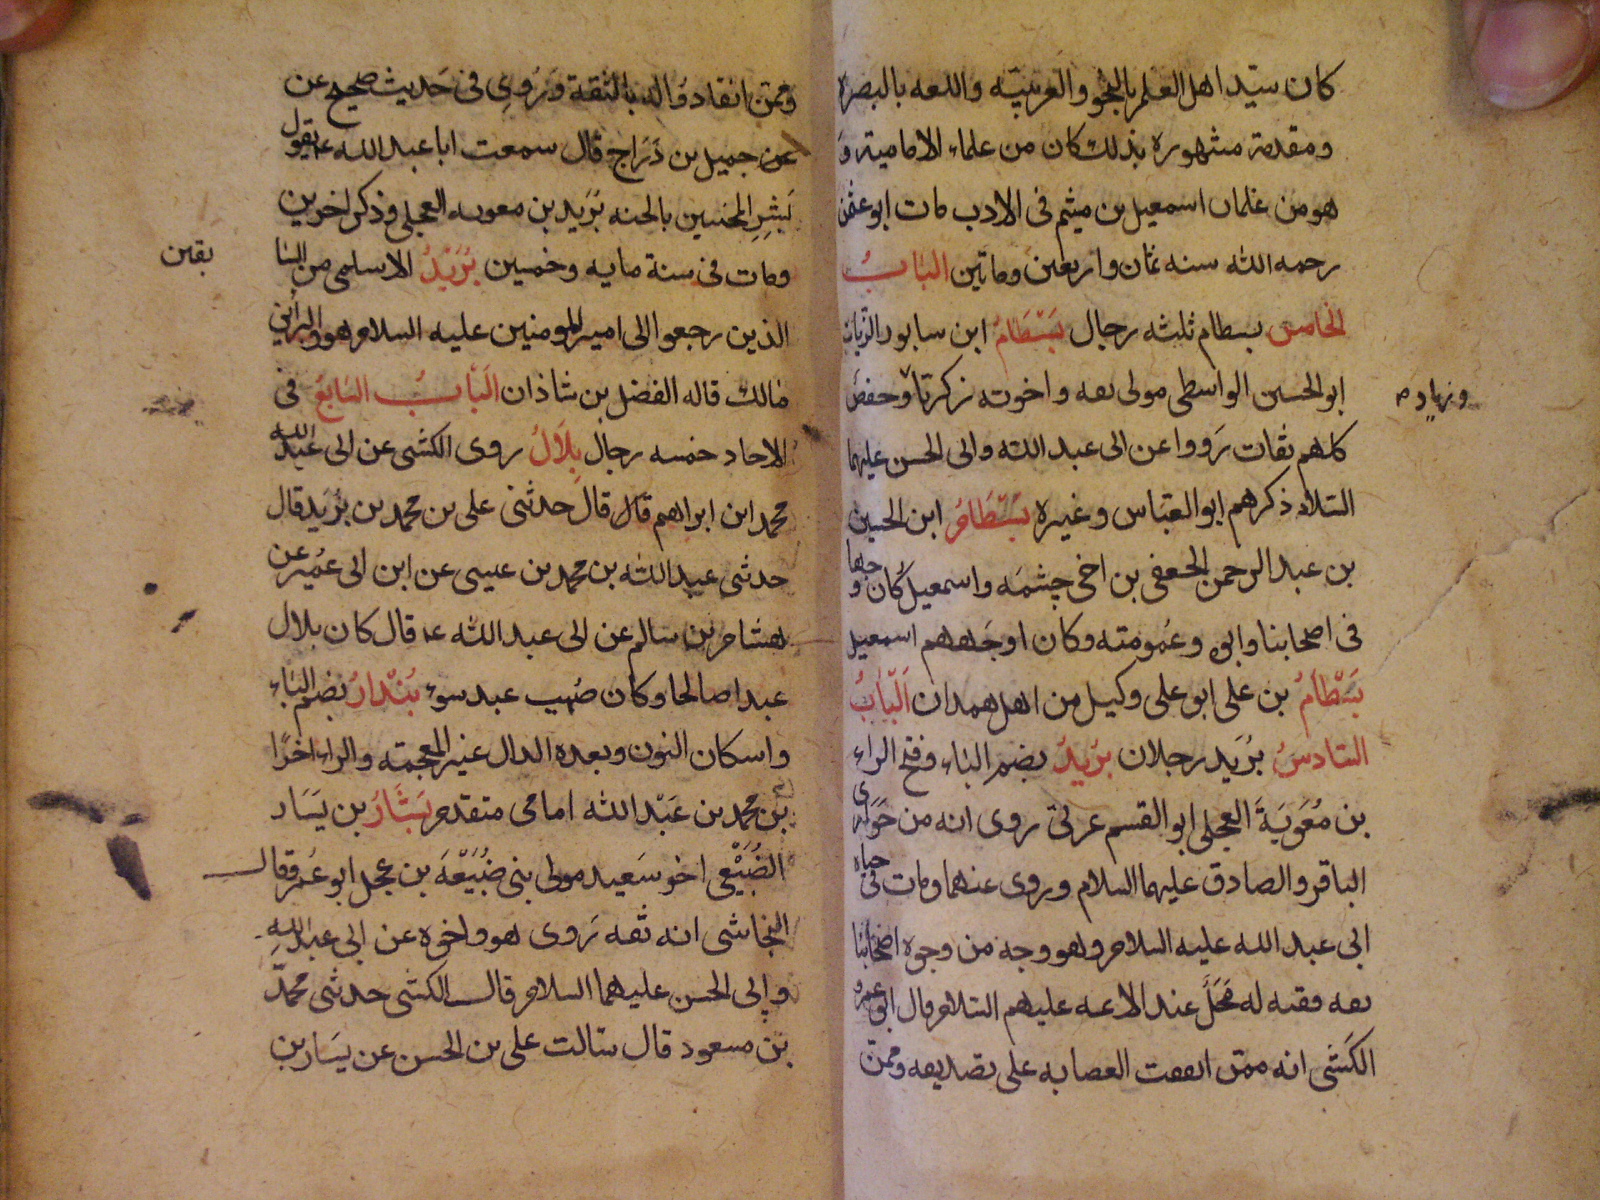 كان سيّد اهل العلم بالنحو والعربيّه واللغه بالبصرة
ومقدمة مشهورة بذلك كان من علماء الامامية و
هو من غلمان اسمعيل بن ميثم فى الادب مات ابو عثمن
رحمه الله سنه ثمان واربعين وماتين البَابُ
الخامس بسطام ثلثه رجال بَسْطَامُ ابن سابور الزيات
ابو الحسين الواسطى مولى ثقه واخوته زكريا وحفص
وزياد م
كلهم ثقات رَووا عن ابى عبد الله وابى الحسن عليهما
السّلام ذكرهم ابو العبّاس وغيره بَسْطَامُ ابن الحصين
بن عبد الرحمن الجعفى بن اخى خيثمَه واسمعيل كان وجها
فى اصحابنا وابوه وعمومته وكان اوجَههم اسمعيل
بَسْطَامُ بن على ابو على وكيل من اهل همدان اَلْبَابُ
السّادسُ بُرَيد رجلان بُرَيدُ بضم الباء وفتح الراء
بن مُعَوَيَةَ العجلى ابو القسم عربىّ روى انه من حَوَارى
الباقر والصادق عليهما السلام وروى عنهما ومات فى حياه
ابى عبد الله عليه السلام وهو وجه من وجوه اصحابنا
ثقه فقيه له مَحَلّ عند الائمه عليهم السّلام قال ابو عمرو
الكَشى انه ممّن اتفقت العصابه على تصديقه وممّن
وممّن انقادوُا له بالثقة وَرُوِى فى حَديث صحيح عن
عن جميل بن دَرَاج قال سمعت ابا عبد الله ع يقول
بَشِرِ المخبتين بالجنه بُرَيد بن معويه العجلى وذكر اخرين
ومات فى سنة مايه وخمسين بُرَيْدُ الاسلمى من السا
بقين
الذين رجعوا الى امير المومنين عليه السلام هو والبرا بن
مالك قاله الفضل بن شاذان اَلبَابُ السَابعُ فى
الاحاد خمسه رجال بِلَالُ روى الكشى عن ابى عبد الله
محمد ابن ابراهيم قال قال حدثنى على بن محمد بن يزَيد قال
حدثنى عبد الله بن محمد بن عيسى عن ابن ابى عُمير عن
هشام بن سالم عن ابى عبد الله ع قال كان بلال
عبدا صالحا وكان صُهيب عبد سوء بُنْدَارُ بضم الباء
واسكان النون وبعده الدال غير المعجمه والراء اخرًا
بن محمد بن عَبْد الله امامى متقدم بَشَّارُ بن يَسَار
الضُبَيْعى اخو سَعيد مولى بنى ضُبَيْعَه بن عجل ابو عَمرو قال
النجاشى انه ثقه رَوى هو واخوه عن ابى عبد اللهِ
وابى الحسن عليهما السلام قال الكشى حدثنى محمدّ
بن مسعود قال سالت على بن الحسن عن يسَار بن